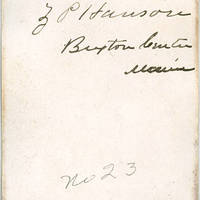 Z P Hanson
Buxton Centre
Maine
No 23